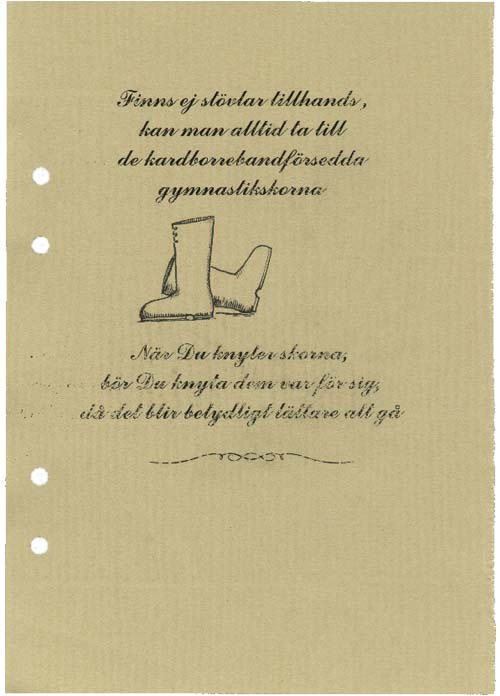 Finns ej stövlar tillhands,
kan man alltid ta till
de kardborrebandförsedda
gymnastikskorna
När Du knyter skorna,
bör Du knyta dem var för sig,
då det blir betydligt lättare att gå